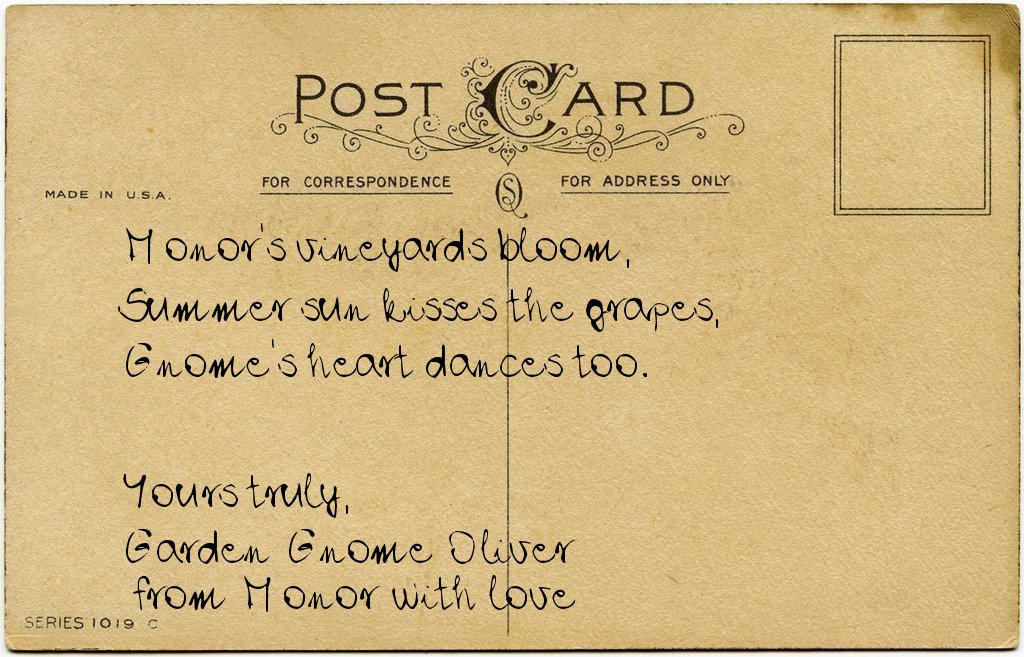 POST CARD
FOR CORRESPONDENCE
FOR ADDRESS ONLY
MADE IN U.S.A.
Monor's vineyards bloom,
Summer sun kisses the grapes,
Gnome's heart dances too.
Yours truly,
Garden Gnome Oliver
from Monor with love
SERIES 1019 C